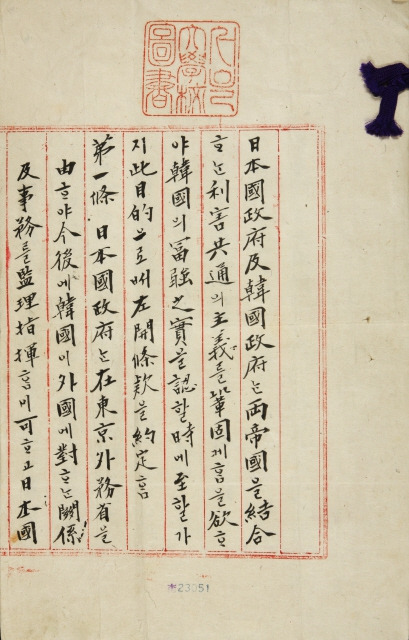 서울大學校圖書
日本國政府及韓國政府는兩帝國을結合
ᄒᆞ는利害共通의主義를鞏固케ᄒᆞᆷ을欲ᄒᆞ
야韓國의富强之實을認ᄒᆞᆯ時에至ᄒᆞᆯ가
지此目的으로ᄡᅥ左開條款을約定ᄒᆞᆷ
第一條 日本國政府는在東京外務省을
由ᄒᆞ야今後에韓國이外國에對ᄒᆞ는關係
及事務를監理指揮ᄒᆞ미可ᄒᆞ고日本國
*23051